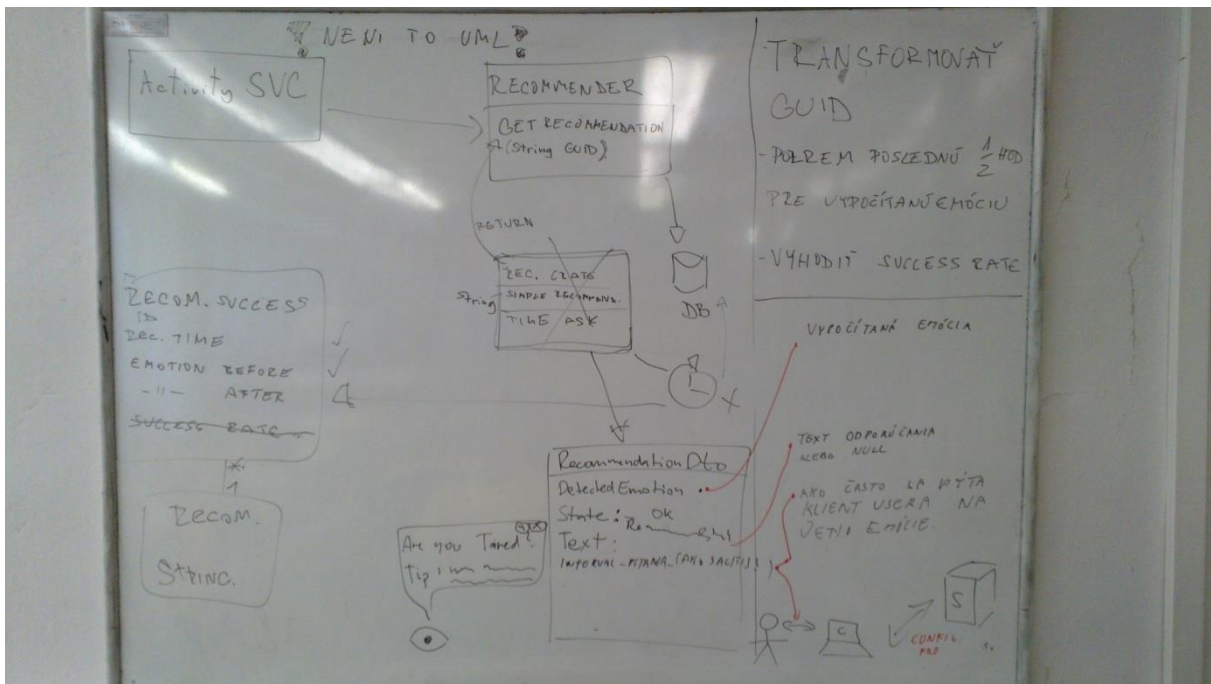 NENI TO UML
Activity SVC
RECOMMENDER
GET RECOMMENDATION
(String GUID)
RETURN
REC. CRATE
String
SIMPLE RECOMMEND.
TIME ASK
DB
RECOM. SUCCESS
ID
REC. TIME
EMOTION BEFORE
-"- AFTER
SUCCESS RATE
*
1
RECOM.
STRING.
*
RecommendationDto
DetectedEmotion
State: OK
Text:
INTERVAL_PITANA_(AKO SALITIS)
Are you Tired?
Tip:
TRANSFORMOVAŤ
GUID
- POZREM POSLEDNÚ 1/2 HOD
PRE VYPOČÍTANÚ EMÓCIU
- VYHODIŤ SUCCESS RATE
VYPOČÍTANÁ EMÓCIA
TEXT ODPORÚČANIA
ALEBO NULL
AKO ČASTO SA PÝTA
KLIENT USERA NA
JEHO EMÓCIE.
C
S
CONFIG.